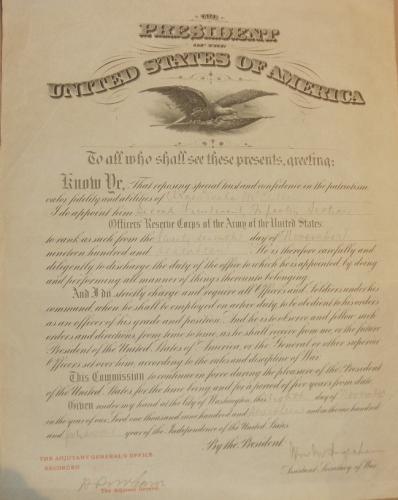 THE
PRESIDENT
OF THE
UNITED STATES OF AMERICA
To all who shall see these presents, greeting:
Know Ye, That reposing special trust and confidence in the patriotism
valor, fidelity and abilities of
I do appoint him Second Lieutenant, Section
Officers' Reserve Corps of the Army of the United States:
to rank as such from the day of November
nineteen hundred and . He is therefore carefully and
diligently to discharge the duty of the office to which he is appointed, by doing
and performing all manner of things thereunto belonging.
And I do strictly charge and require all Officers and Soldiers under his
command, when he shall be employed on active duty, to be obedient to his orders
as an officer of his grade and position. And he is to observe and follow such
orders and directions, from time to time, as he shall receive from me, or the future
President of the United States of America, or the General or other superior
Officers set over him, according to the rules and discipline of War.
This Commission to continue in force during the pleasure of the President
of the United States for the time being and for a period of five years from date.
Given under my hand at the City of Washington, this day of November
in the year of our Lord one thousand nine hundred and and in the one hundred
and year of the Independence of the United States.
By the President:
THE ADJUTANT GENERAL'S OFFICE.
RECORDED
The Adjutant General.
Assistant Secretary of War.